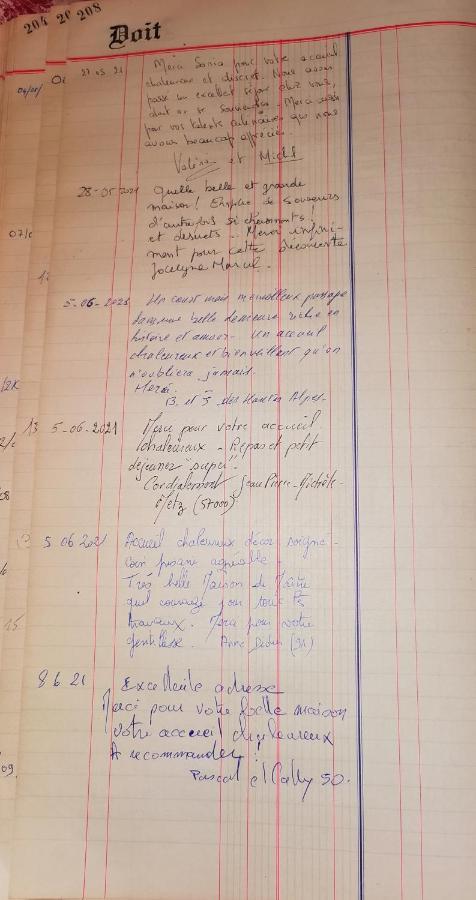 204 20 208
Doit
27.05.21 Merci Sonia pour votre accueil
chaleureux et discret. Nous avons
passé un excellent séjour chez vous,
dont on se souviendra. Merci aussi
pour vos talents culinaires que nous
avons beaucoup apprécié.
Valérie et Michel
28-05-2021 Quelle belle et grande
maison! Emplie de souvenirs
d'autrefois si charmants!
et desuets... Merci infini-
ment pour cette découverte
Jocelyne Marcel.
5-06-2021 Un court mais merveilleux passage
dans une belle demeure riche en
histoire et amour. Un accueil
chaleureux et bienveillant qu'on
n'oubliera jamais.
Merci.
B et J des Hautes Alpes.
5-06-2021 Merci pour votre accueil
chaleureux - Repas et petit
déjeuner "super".
Cordialement Jean Pierre - Michèle -
Metz (57000)
5 06 2021 Accueil chaleureux décor soigné -
coin piscine agréable -
Très belle Maison de Maître
quel courage pour tous ces
travaux. Merci pour votre
gentillesse. Anne Didier (91)
8 6 21 Excellente adresse
Merci pour votre belle maison
votre accueil chaleureux
A recommander!
Pascal et Cathy 50.